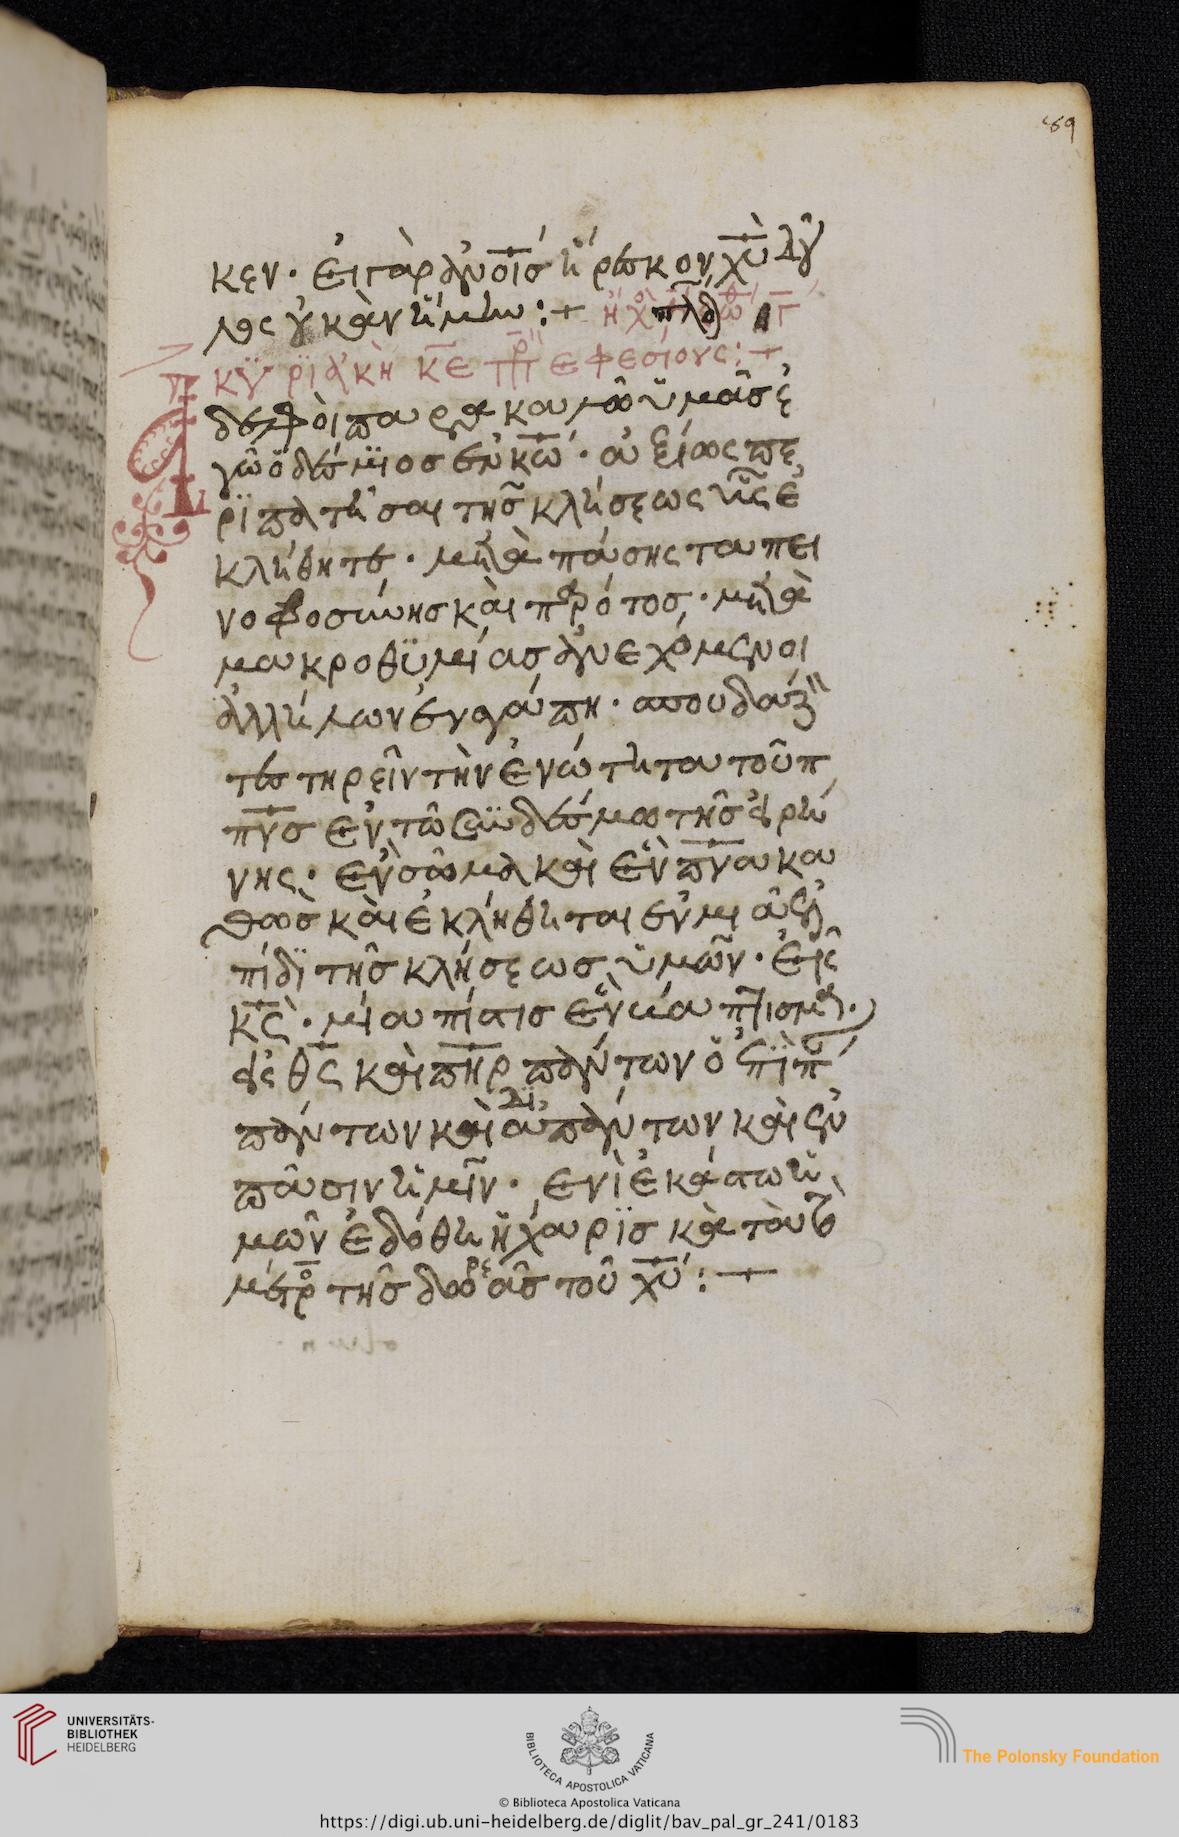 89
κεν· εἰ γὰρ ἀν̅ο̅ι̅ς ἤρεσκον, χ̅υ̅ δοῦ
λος οὐκ ἂν ἤμην :+
κυριακὴ κ̅ε̅ πρ ἐφεσίους :+
Ἀδελφοὶ παρακαλῶ ὑμᾶς ἐ
γὼ ὁ δέσμιος ἐν κ̅ω̅· ἀξίως πε
ριπατῆσαι τῆς κλήσεως ἧς ἐ
κλήθητε· μετὰ πάσης ταπει
νοφροσύνης καὶ πραότητος· μετὰ
μακροθυμίας ἀνεχόμενοι
ἀλλήλων ἐν ἀγάπη· σπουδάζον
τες τηρεῖν τὴν ἑνότητα τοῦ π
π̅ν̅ς ἐν τῶ συνδέσμω τῆς εἰρή
νης· ἓν σῶμα καὶ ἓν π̅ν̅α κα
θὼς καὶ ἐκλήθηται ἐν μιᾶ ἐλ
πίδι τῆς κλήσεως ὑμῶν· εἷς
κ̅ς̅· μία πίστις ἓν βάπτισμα·
εἷς θ̅ς̅ καὶ π̅η̅ρ πάντων ὁ ἐπὶ π
πάντων καὶ διὰ πάντων καὶ ἐν
πᾶσιν ἡμῖν· ἑνὶ ἑκάστω ἡ
μῶν ἐδόθη ἡ χάρις κατὰ τὸ
μέτρ τῆς δωρεᾶς τοῦ χ̅υ̅ :+
UNIVERSITÄTS-
BIBLIOTHEK
HEIDELBERG
BIBLIOTECA APOSTOLICA VATICANA
The Polonsky Foundation
© Biblioteca Apostolica Vaticana
https://digi.ub.uni-heidelberg.de/diglit/bav_pal_gr_241/0183